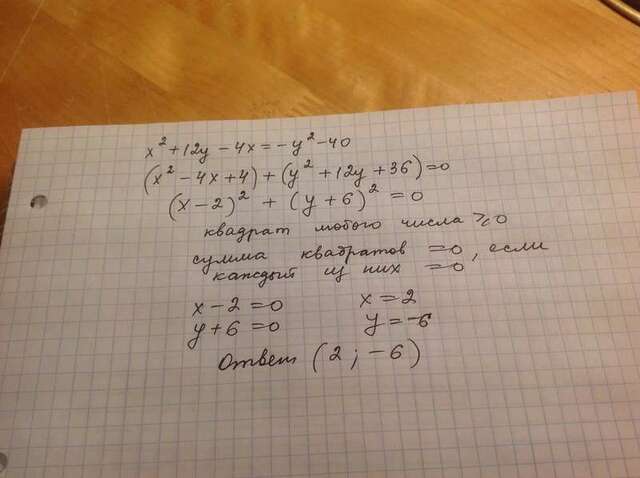 x² + 12y − 4x = −y² − 40
(x² − 4x + 4) + (y² + 12y + 36) = 0
(x − 2)² + (y + 6)² = 0
квадрат любого числа ⩾ 0
сумма квадратов = 0, если
каждый из них = 0
x − 2 = 0 x = 2
y + 6 = 0 y = −6
Ответ (2; −6)